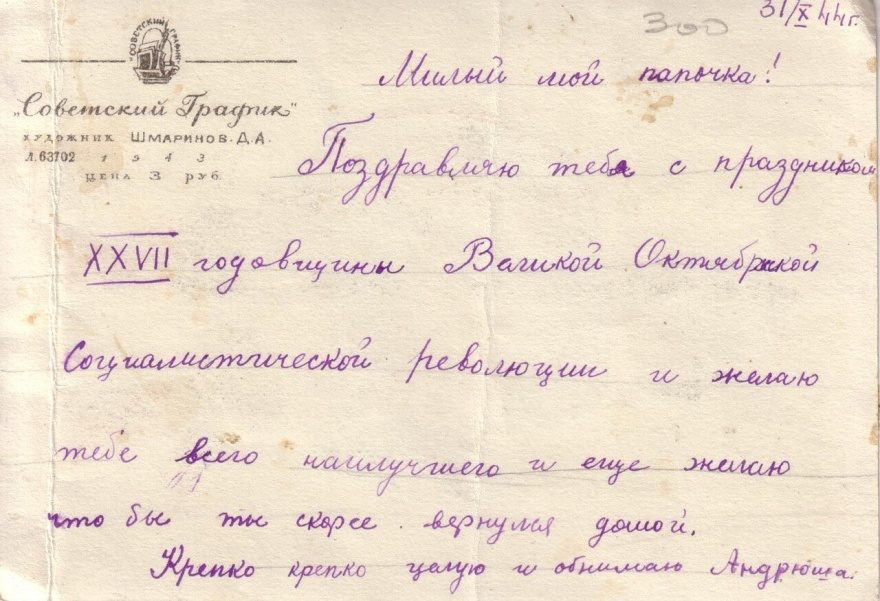 31/X 44г.
300
СОВЕТСКИЙ ГРАФИК
„Советский График"
ХУДОЖНИК ШМАРИНОВ. Д.А.
Л.63702 1943
ЦЕНА 3 РУБ.
Милый мой папочка!
Поздравляю тебя с праздником
XXVII годовщины Великой Октябрской
Социалистической революции и желаю
тебе всего наилучшего и еще желаю
что бы ты скорее вернулся домой.
Крепко крепко целую и обнимаю Андрюша.